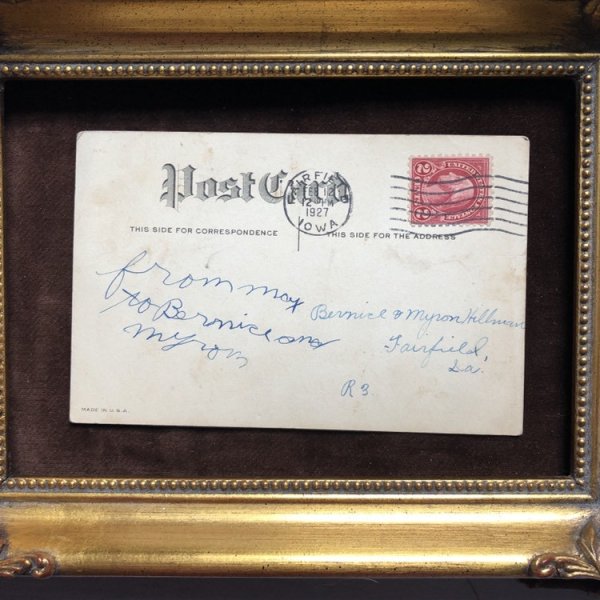 Post Card
FAIRFIELD
FEB 12
12 PM
1927
IOWA
UNITED STATES
THIS SIDE FOR CORRESPONDENCE
THIS SIDE FOR THE ADDRESS
from Max
to Bernice and
myron
Bernice & Myron Hillman
Fairfield,
Ia.
R 3
MADE IN U.S.A.